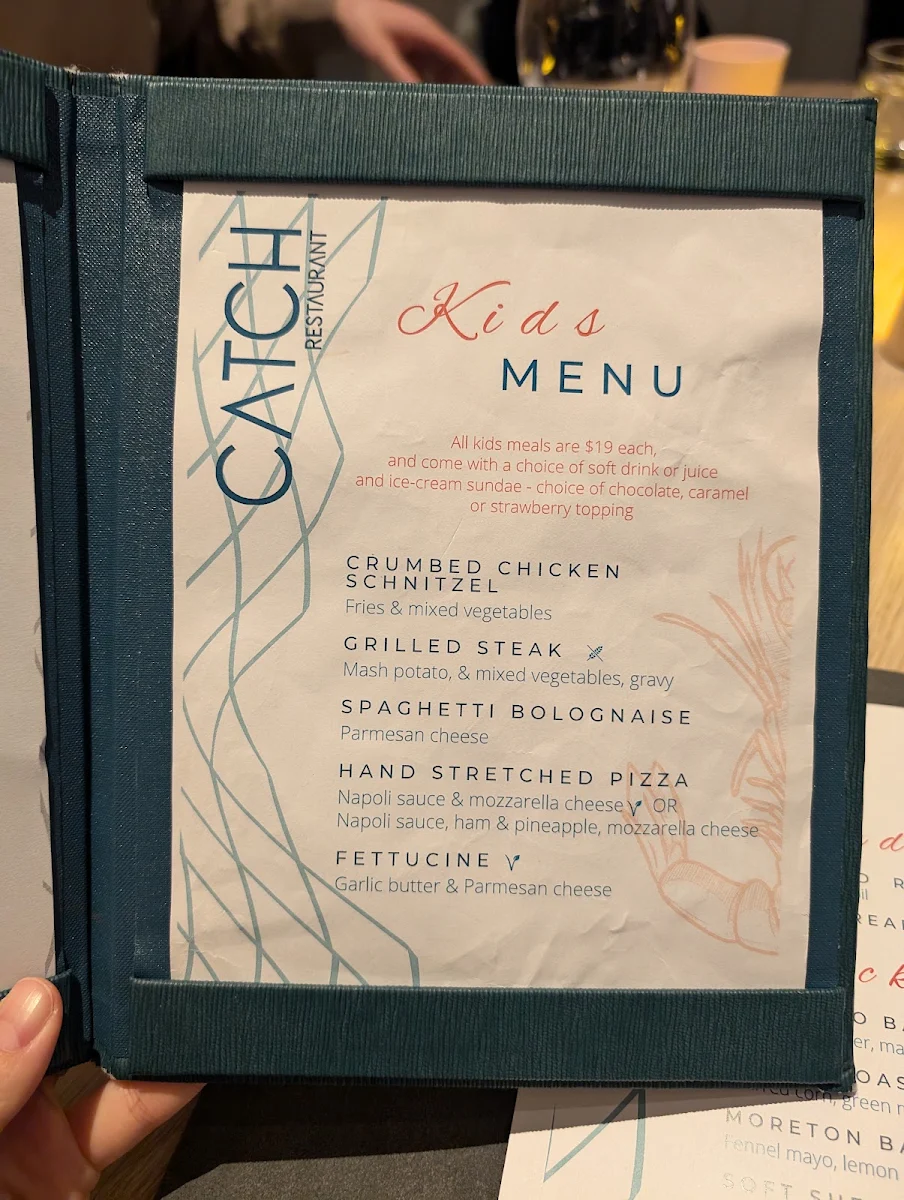 CATCH
RESTAURANT
Kids
MENU
All kids meals are $19 each,
and come with a choice of soft drink or juice
and ice-cream sundae - choice of chocolate, caramel
or strawberry topping
CRUMBED CHICKEN
SCHNITZEL
Fries & mixed vegetables
GRILLED STEAK
Mash potato, & mixed vegetables, gravy
SPAGHETTI BOLOGNAISE
Parmesan cheese
HAND STRETCHED PIZZA
Napoli sauce & mozzarella cheese OR
Napoli sauce, ham & pineapple, mozzarella cheese
FETTUCINE
Garlic butter & Parmesan cheese
corn, green
MORETON
Fennel mayo, lemon
SOFT